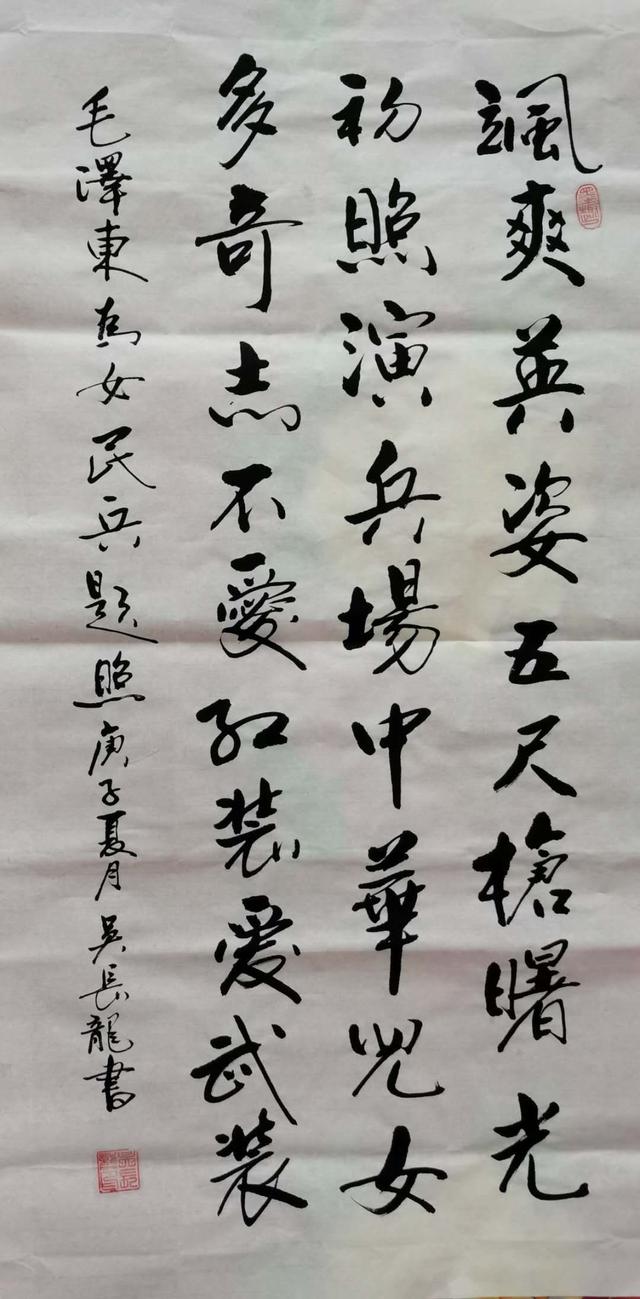 颯爽英姿五尺槍曙光
初照演兵場中華兒女
多奇志不愛紅装愛武装
毛澤東為女民兵題照庚子夏月吳長龍書